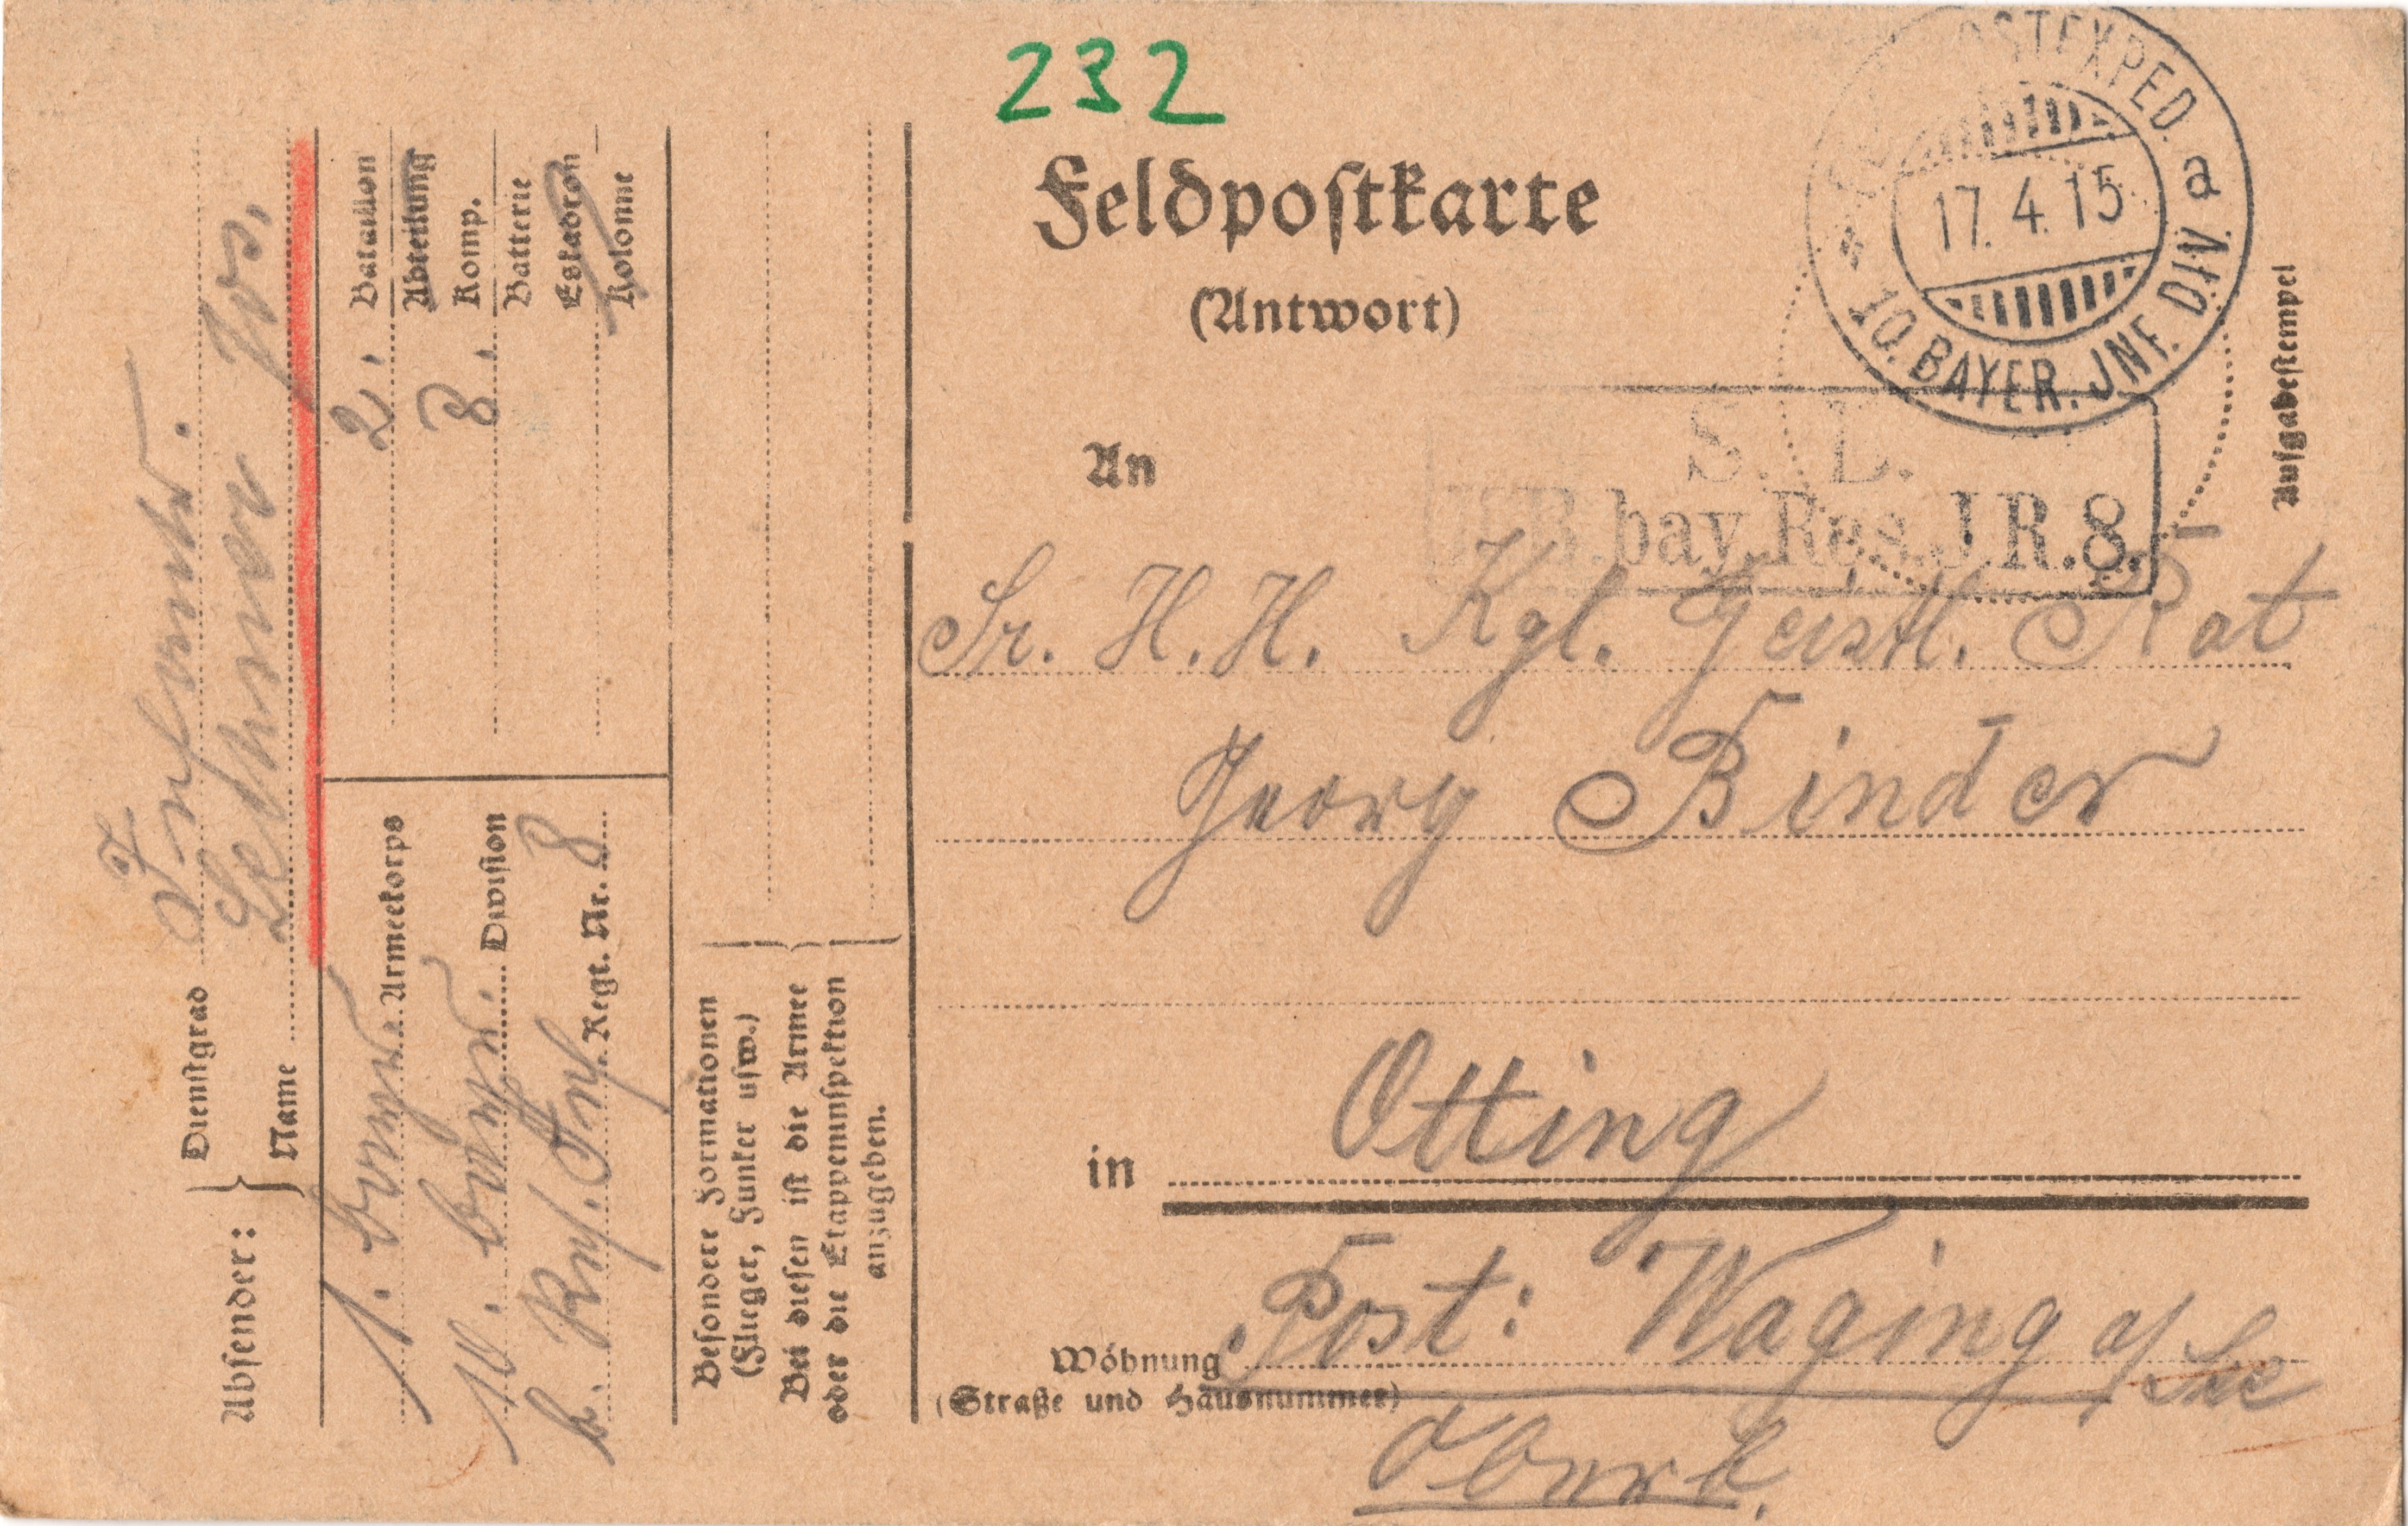 232
Feldpostkarte
(Antwort)
POSTEXPED.
a
17. 4. 15
10. BAYER. JNF. DIV.
Aufgabestempel
An
S. B.
bay. Res. J. R. 8.
Sr. H. H. Kgl. Geistl. Rat
Georg Binder
in Otting
Wohnung Post: Waging a/See
(Straße und Hausnummer)
Oberb.
Absender:
Dienstgrad
Infantr.
Name
Jos.
1. bayer. Armeekorps
10. bayr. Division
b. Res. Inf. Regt. Nr. 8
2. Bataillon
Abteilung
8. Komp.
Batterie
Eskadron
Kolonne
Besondere Formationen
(Flieger, Funker usw.)
Bei diesen ist die Armee
oder die Etappeninspektion
anzugeben.